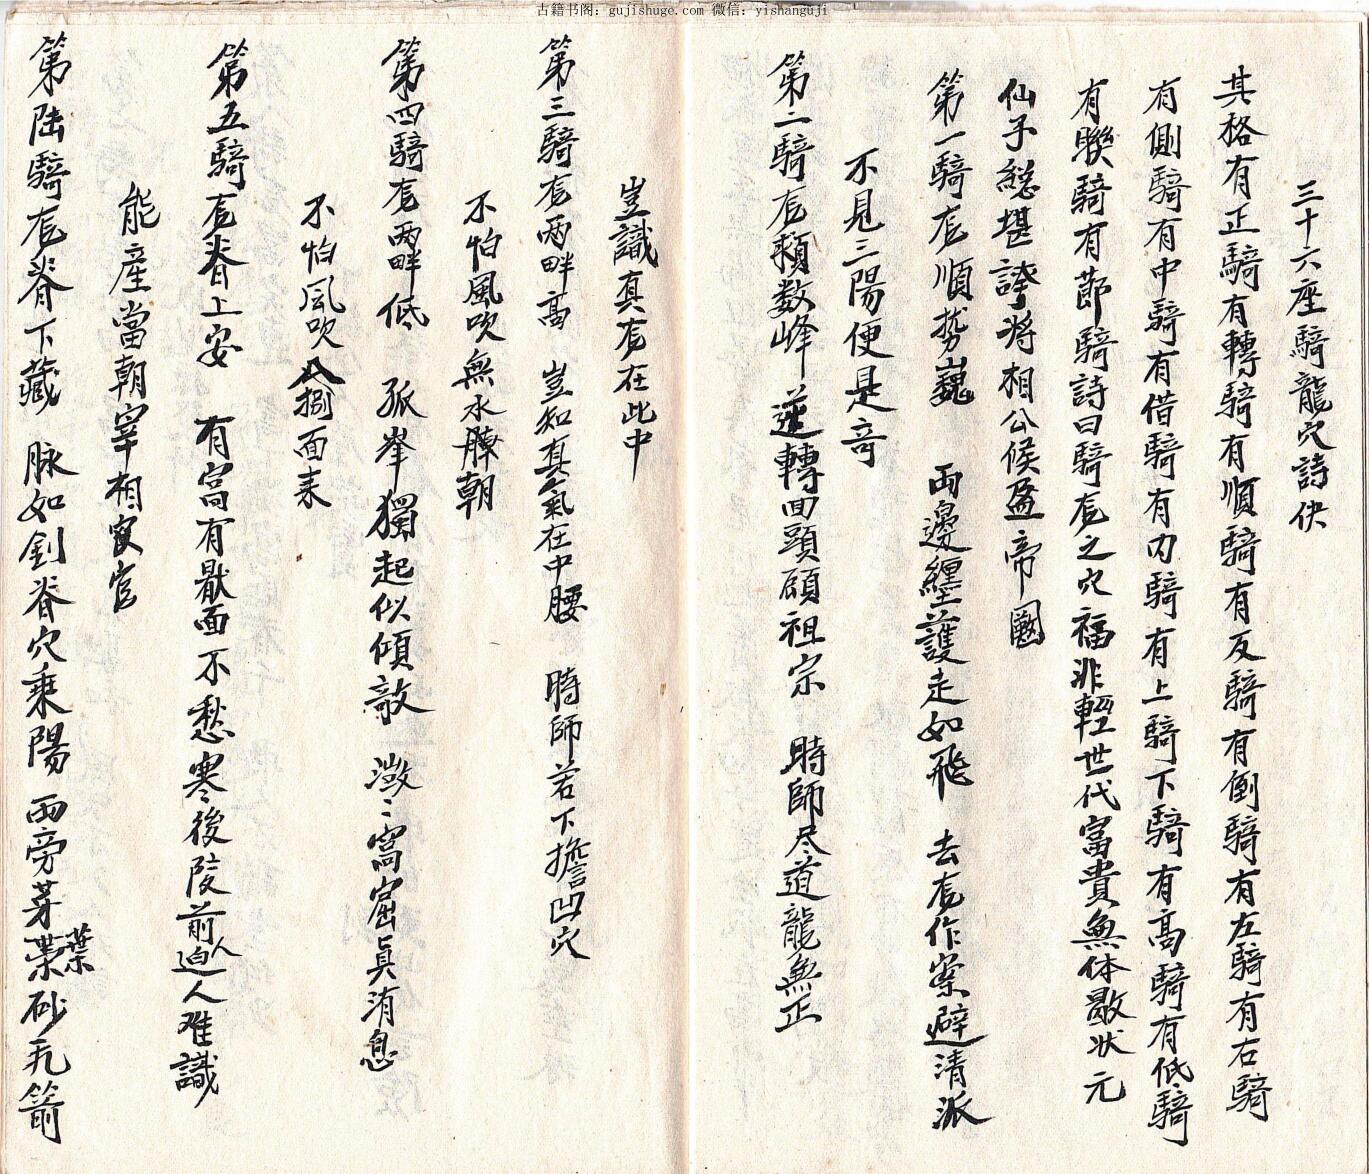 古籍书阁：gujishuge.com 微信：yishanguji
三十六座騎龍穴詩佅
其格有正騎有轉騎有順騎有反騎有倒騎有左騎有右騎
有側騎有中騎有借騎有内騎有上騎下騎有高騎有低騎
有聮騎有節騎詩曰騎竜之穴福非輕世代富貴無体歇状元
仙子總堪誇将相公候盈帝國
第一騎竜順势巍 両邊纏護走如飛 去竜作案避清派
不見三陽便是竒
第二騎竜頼数峰 逆轉回頭頋祖宗 時師尽道龍無正
豈識真竜在此中
第三騎竜両畔高 豈知真氣在中腰 時師若下擔凹穴
不怕風吹無水朝
第四騎竜両畔低 孤峯獨起似傾敧 濈〻窩窟眞消息
不怕風吹捌面来
第五騎竜脊上安 有窩有猒面不愁寒後陵前迫人难識
能産當朝宰相官
第陆騎竜脊下藏 脉如釗脊穴乘陽 両旁芽葉砂无箭